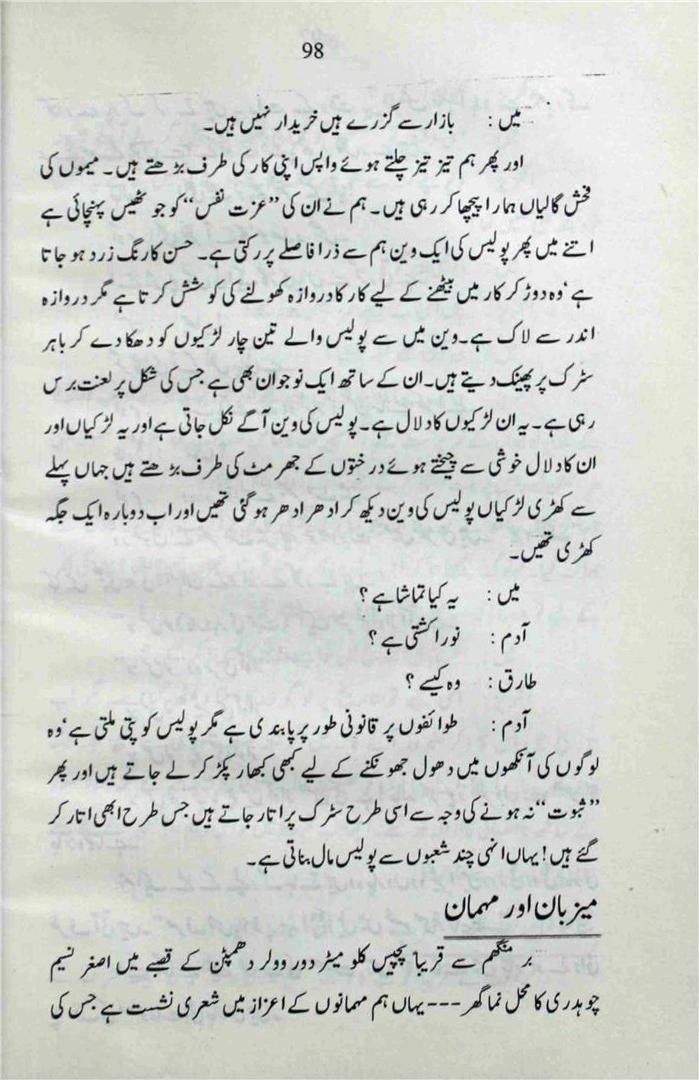 98
میں : بازار سے گزرے ہیں خریدار نہیں ہیں۔
اور پھر ہم تیز تیز چلتے ہوئے واپس اپنی کار کی طرف بڑھتے ہیں۔ میموں کی
فحش گالیاں ہمارا پیچھا کر رہی ہیں۔ ہم نے ان کی ”عزت نفس“ کو جو ٹھیس پہنچائی ہے
اتنے میں پھر پولیس کی ایک وین ہم سے ذرا فاصلے پر رکتی ہے۔ حسن کا رنگ زرد ہو جاتا
ہے‘ وہ دوڑ کر کار میں بیٹھنے کے لیے کار کا دروازہ کھولنے کی کوشش کرتا ہے مگر دروازہ
اندر سے لاک ہے۔ وین میں سے پولیس والے تین چار لڑکیوں کو دھکا دے کر باہر
سڑک پر پھینک دیتے ہیں۔ ان کے ساتھ ایک نوجوان بھی ہے جس کی شکل پر لعنت برس
رہی ہے۔ یہ ان لڑکیوں کا دلال ہے۔ پولیس کی وین آگے نکل جاتی ہے اور یہ لڑکیاں اور
ان کا دلال خوشی سے چیختے ہوئے درختوں کے جھرمٹ کی طرف بڑھتے ہیں جہاں پہلے
سے کھڑی لڑکیاں پولیس کی وین دیکھ کر ادھر ادھر ہو گئی تھیں اور اب دوبارہ ایک جگہ
کھڑی تھیں۔
میں : یہ کیا تماشا ہے؟
آدم : نورا کشتی ہے؟
طارق : وہ کیسے؟
آدم : طوائفوں پر قانونی طور پر پابندی ہے مگر پولیس کو پتی ملتی ہے‘ وہ
لوگوں کی آنکھوں میں دھول جھونکنے کے لیے کبھی کبھار پکڑ کر لے جاتے ہیں اور پھر
”ثبوت“ نہ ہونے کی وجہ سے اسی طرح سڑک پر اتار جاتے ہیں جس طرح ابھی اتار کر
گئے ہیں! یہاں انہی چند شعبوں سے پولیس مال بناتی ہے۔
میزبان اور مہمان
برمنگھم سے قریباً پچیس کلومیٹر دور وولر دھمپٹن کے قصبے میں اصغر نسیم
چوہدری کا محل نما گھر --- یہاں ہم مہمانوں کے اعزاز میں شعری نشست ہے جس کی